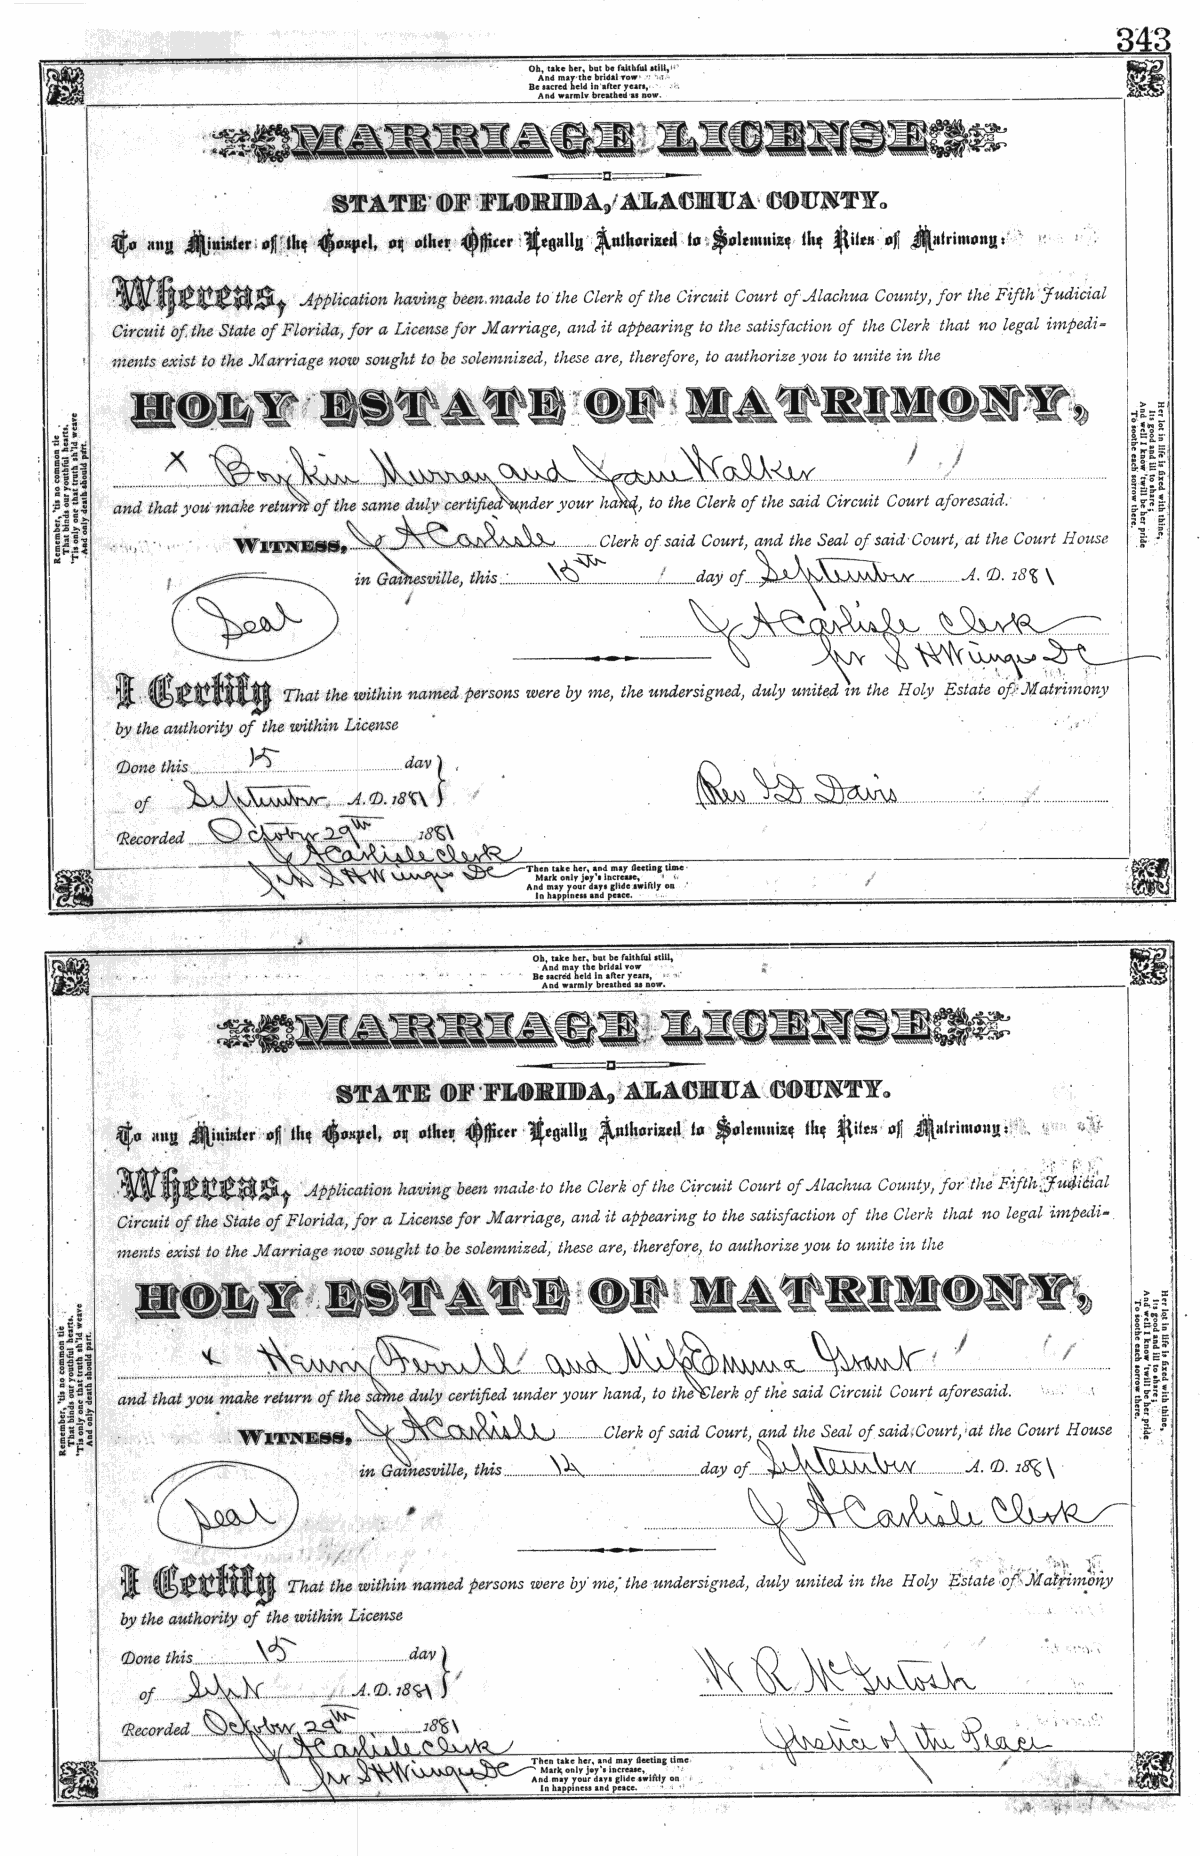 343
Oh, take her, but be faithful still,
And may the bridal vow
Be sacred held in after years,
And warmly breathed as now.
MARRIAGE LICENSE
STATE OF FLORIDA, ALACHUA COUNTY.
To any Minister of the Gospel, or other Officer Legally Authorized to Solemnize the Rites of Matrimony:
Whereas, Application having been made to the Clerk of the Circuit Court of Alachua County, for the Fifth Judicial
Circuit of the State of Florida, for a License for Marriage, and it appearing to the satisfaction of the Clerk that no legal impedi-
ments exist to the Marriage now sought to be solemnized, these are, therefore, to authorize you to unite in the
HOLY ESTATE OF MATRIMONY,
x Boykin Murray and Jane Walker
and that you make return of the same duly certified under your hand, to the Clerk of the said Circuit Court aforesaid.
WITNESS, J A Carlisle Clerk of said Court, and the Seal of said Court, at the Court House
in Gainesville, this 15th day of September A. D. 1881
Seal
J A Carlisle Clerk
pr S H Wienges DC
I Certify That the within named persons were by me, the undersigned, duly united in the Holy Estate of Matrimony
by the authority of the within License
Done this 15 day
of September A. D. 1881
Rev D Davis
Recorded October 29th 1881
J A Carlisle Clerk
pr S H Wienges DC
Then take her, and may fleeting time
Mark only joy's increase,
And may your days glide swiftly on
In happiness and peace.
Remember, 'tis no common tie
That binds our youthful hearts,
'Tis only one that truth sh'ld weave
And only death should part.
Her lot in life is fixed with thine,
Its good and ill to share;
And well I know 'twill be her pride
To soothe each sorrow there.
Oh, take her, but be faithful still,
And may the bridal vow
Be sacred held in after years,
And warmly breathed as now.
MARRIAGE LICENSE
STATE OF FLORIDA, ALACHUA COUNTY.
To any Minister of the Gospel, or other Officer Legally Authorized to Solemnize the Rites of Matrimony:
Whereas, Application having been made to the Clerk of the Circuit Court of Alachua County, for the Fifth Judicial
Circuit of the State of Florida, for a License for Marriage, and it appearing to the satisfaction of the Clerk that no legal impedi-
ments exist to the Marriage now sought to be solemnized, these are, therefore, to authorize you to unite in the
HOLY ESTATE OF MATRIMONY,
x Henry Ferrill and Miss Emma Grant
and that you make return of the same duly certified under your hand, to the Clerk of the said Circuit Court aforesaid.
WITNESS, J A Carlisle Clerk of said Court, and the Seal of said Court, at the Court House
in Gainesville, this 14 day of September A. D. 1881
Seal
J A Carlisle Clerk
I Certify That the within named persons were by me, the undersigned, duly united in the Holy Estate of Matrimony
by the authority of the within License
Done this 15 day
of Sept A. D. 1881
W R McIntosh
Recorded October 29th 1881
Justice of the Peace
J A Carlisle Clerk
pr S H Wienges DC
Then take her, and may fleeting time
Mark only joy's increase,
And may your days glide swiftly on
In happiness and peace.
Remember, 'tis no common tie
That binds our youthful hearts,
'Tis only one that truth sh'ld weave
And only death should part.
Her lot in life is fixed with thine,
Its good and ill to share;
And well I know 'twill be her pride
To soothe each sorrow there.